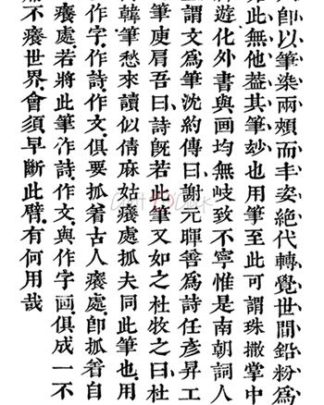 即以筆染兩頰而丰姿絕代轉覺世間鉛粉爲
此無他葢其筆妙也用筆至此可謂珠撒掌中
遊化外書與画均無岐致不寧惟是南朝詞人
謂文爲筆沈約傳曰謝元暉善爲詩任彥昇工
筆庾肩吾曰詩旣若此筆又如之杜牧之曰杜
韓筆愁來讀似倩麻姑癢處抓夫同此筆也用
作字作詩作文俱要抓着古人癢處卽抓着自
癢處若將此筆作詩作文與作字画俱成一不
不癢世界會須早斷此臂有何用哉